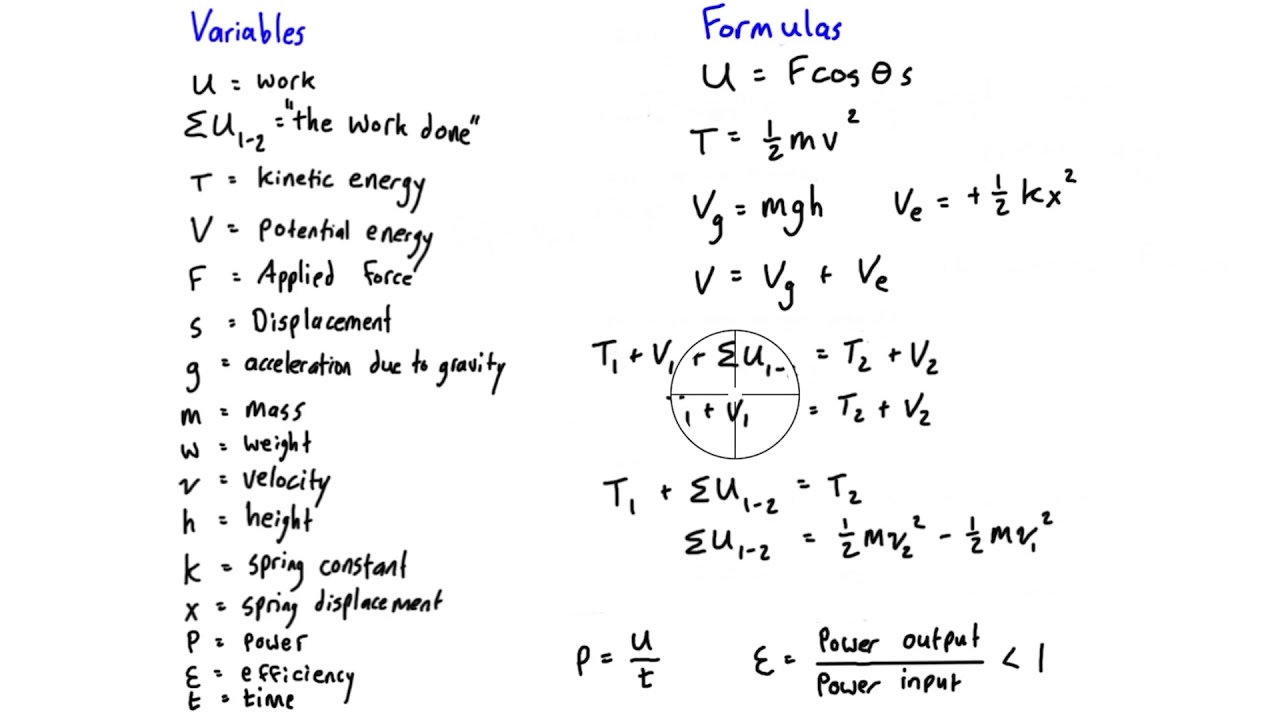 Variables
U = work
ΣU₁₋₂ = "the work done"
T = kinetic energy
V = Potential energy
F = Applied force
s = Displacement
g = acceleration due to gravity
m = mass
w = weight
v = velocity
h = height
k = spring constant
x = spring displacement
P = power
ε = efficiency
t = time
Formulas
U = F cos θ s
T = ½mv²
Vg = mgh Ve = +½kx²
V = Vg + Ve
T₁ + V₁ + ΣU₁₋ = T₂ + V₂
₁ + V₁ = T₂ + V₂
T₁ + ΣU₁₋₂ = T₂
ΣU₁₋₂ = ½mv₂² - ½mv₁²
P = U/t ε = Power output / Power input < 1